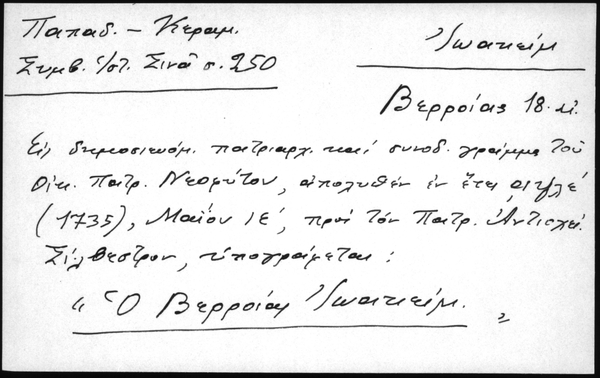 Παπαδ. – Κεραμ.
Συμβ. ἱστ. Σινᾶ σ. 250
Ἰωακεὶμ
Βερροίας 18. αἰ.
Εἰς δημοσιευόμ. πατριαρχ. καὶ συνοδ. γράμμα τοῦ
Οἰκ. Πατρ. Νεοφύτου, ἀπολυθὲν ἐν ἔτει ͵αψλε΄
(1735), Μαΐου ΙΕ΄, πρὸς τὸν Πατρ. Ἀντιοχεί.
Σίλβεστρον, ὑπογράφεται :
" Ὁ Βερροίας Ἰωακείμ. "